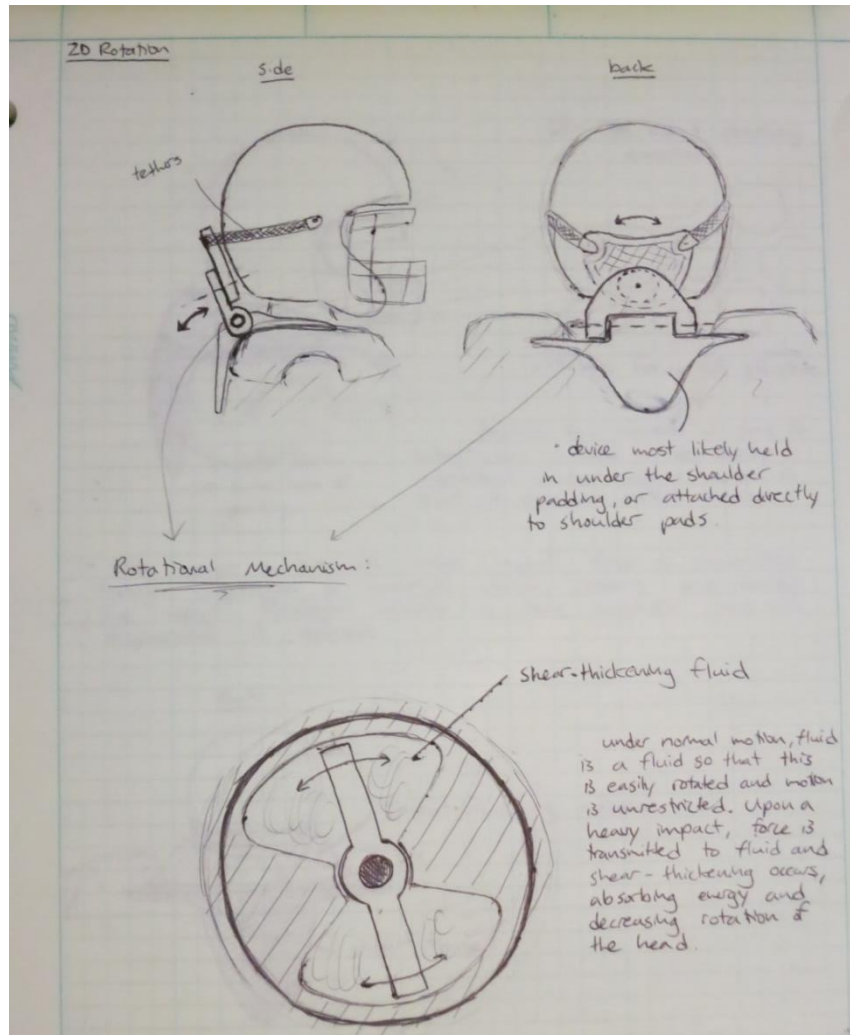 2D Rotation
side
back
tethers
· device most likely held
in under the shoulder
padding, or attached directly
to shoulder pads.
Rotational Mechanism:
shear-thickening fluid
under normal motion, fluid
is a fluid so that this
is easily rotated and motion
is unrestricted. Upon a
heavy impact, force is
transmitted to fluid and
shear-thickening occurs,
absorbing energy and
decreasing rotation of
the head.